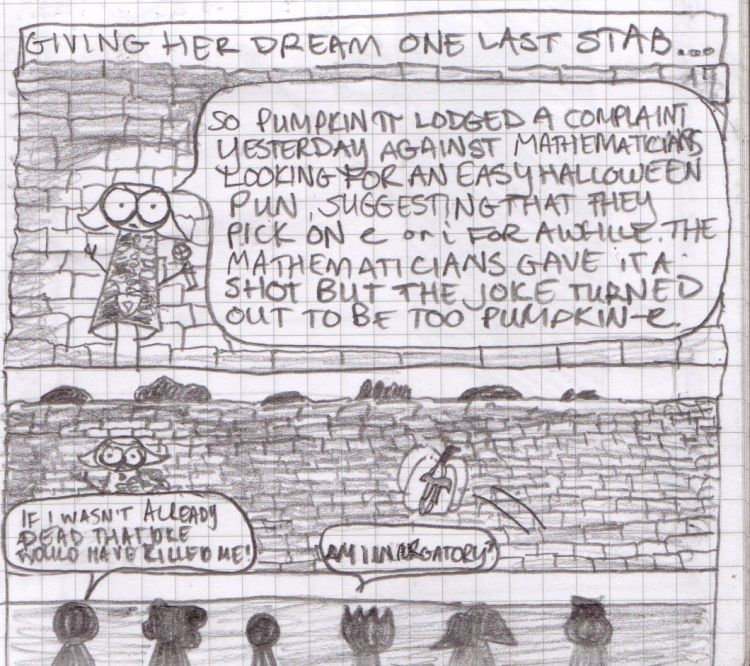 GIVING HER DREAM ONE LAST STAB...
SO PUMPKIN π LODGED A COMPLAINT
YESTERDAY AGAINST MATHEMATICIANS
LOOKING FOR AN EASY HALLOWEEN
PUN, SUGGESTING THAT THEY
PICK ON e or i FOR AWHILE. THE
MATHEMATICIANS GAVE IT A
SHOT BUT THE JOKE TURNED
OUT TO BE TOO PUMPKIN-e.
IF I WASN'T ALREADY
DEAD THAT JOKE
WOULD HAVE KILLED ME!
AM I IN PURGATORY?